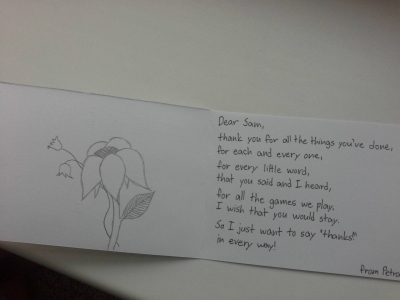 Dear Sam,
thank you for all the things you've done,
for each and every one,
for every little word,
that you said and I heard,
for all the games we play.
I wish that you would stay.
So I just want to say "thanks!"
in every way!
from Petra